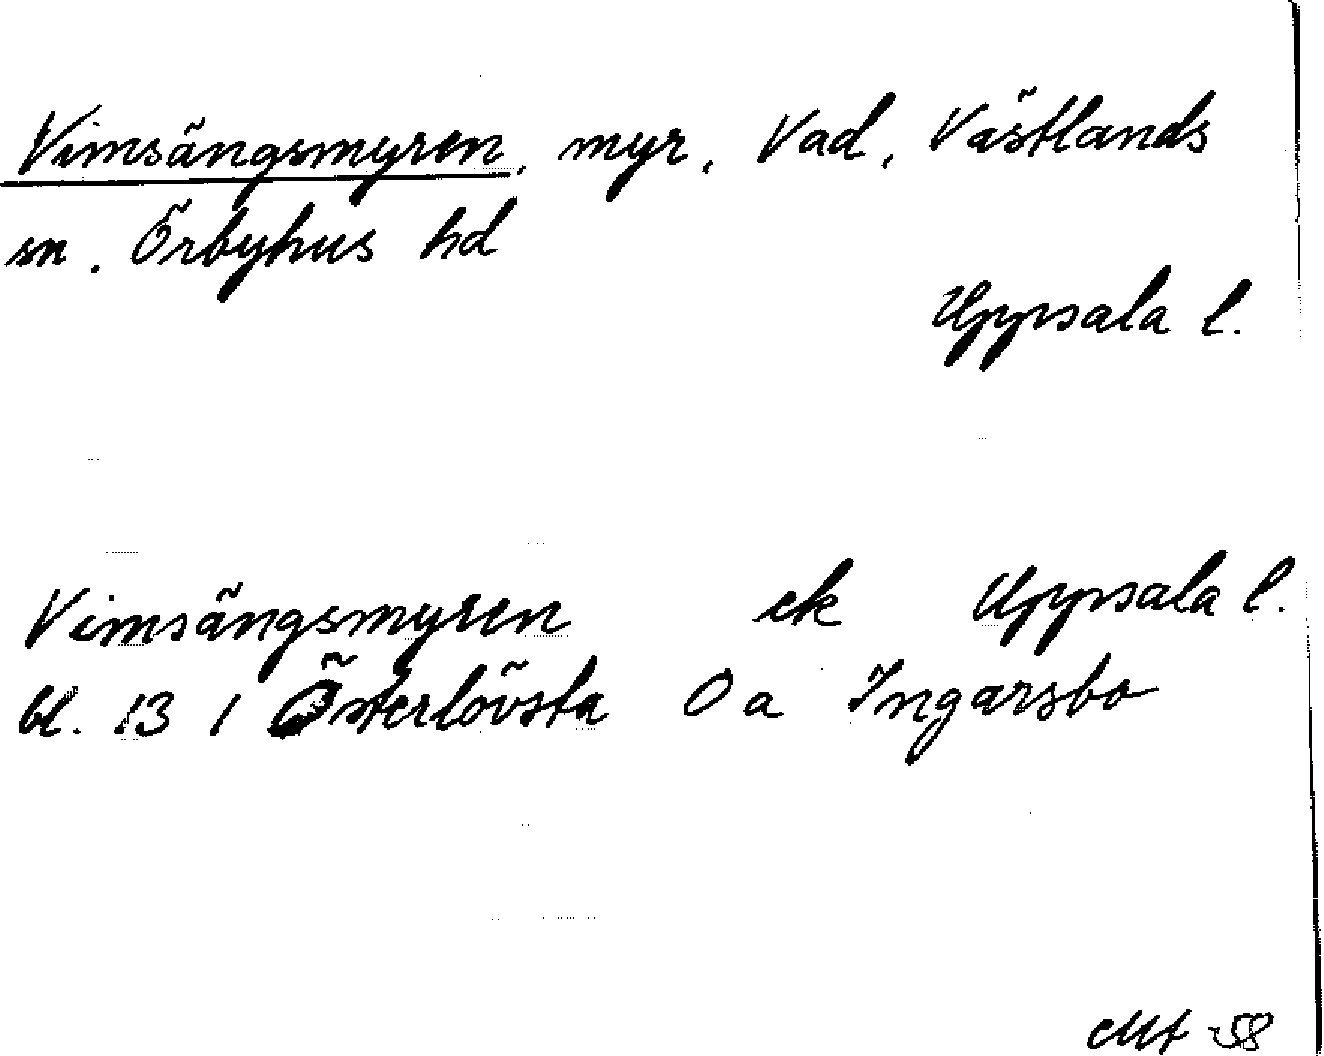 Vimsängsmyren, myr, Vad, Västlands
sn. Örbyhus hd
Uppsala l.
Vimsängsmyren ek Uppsala l.
bl. 13 1 Österlövsta O a Ingarsbo
58